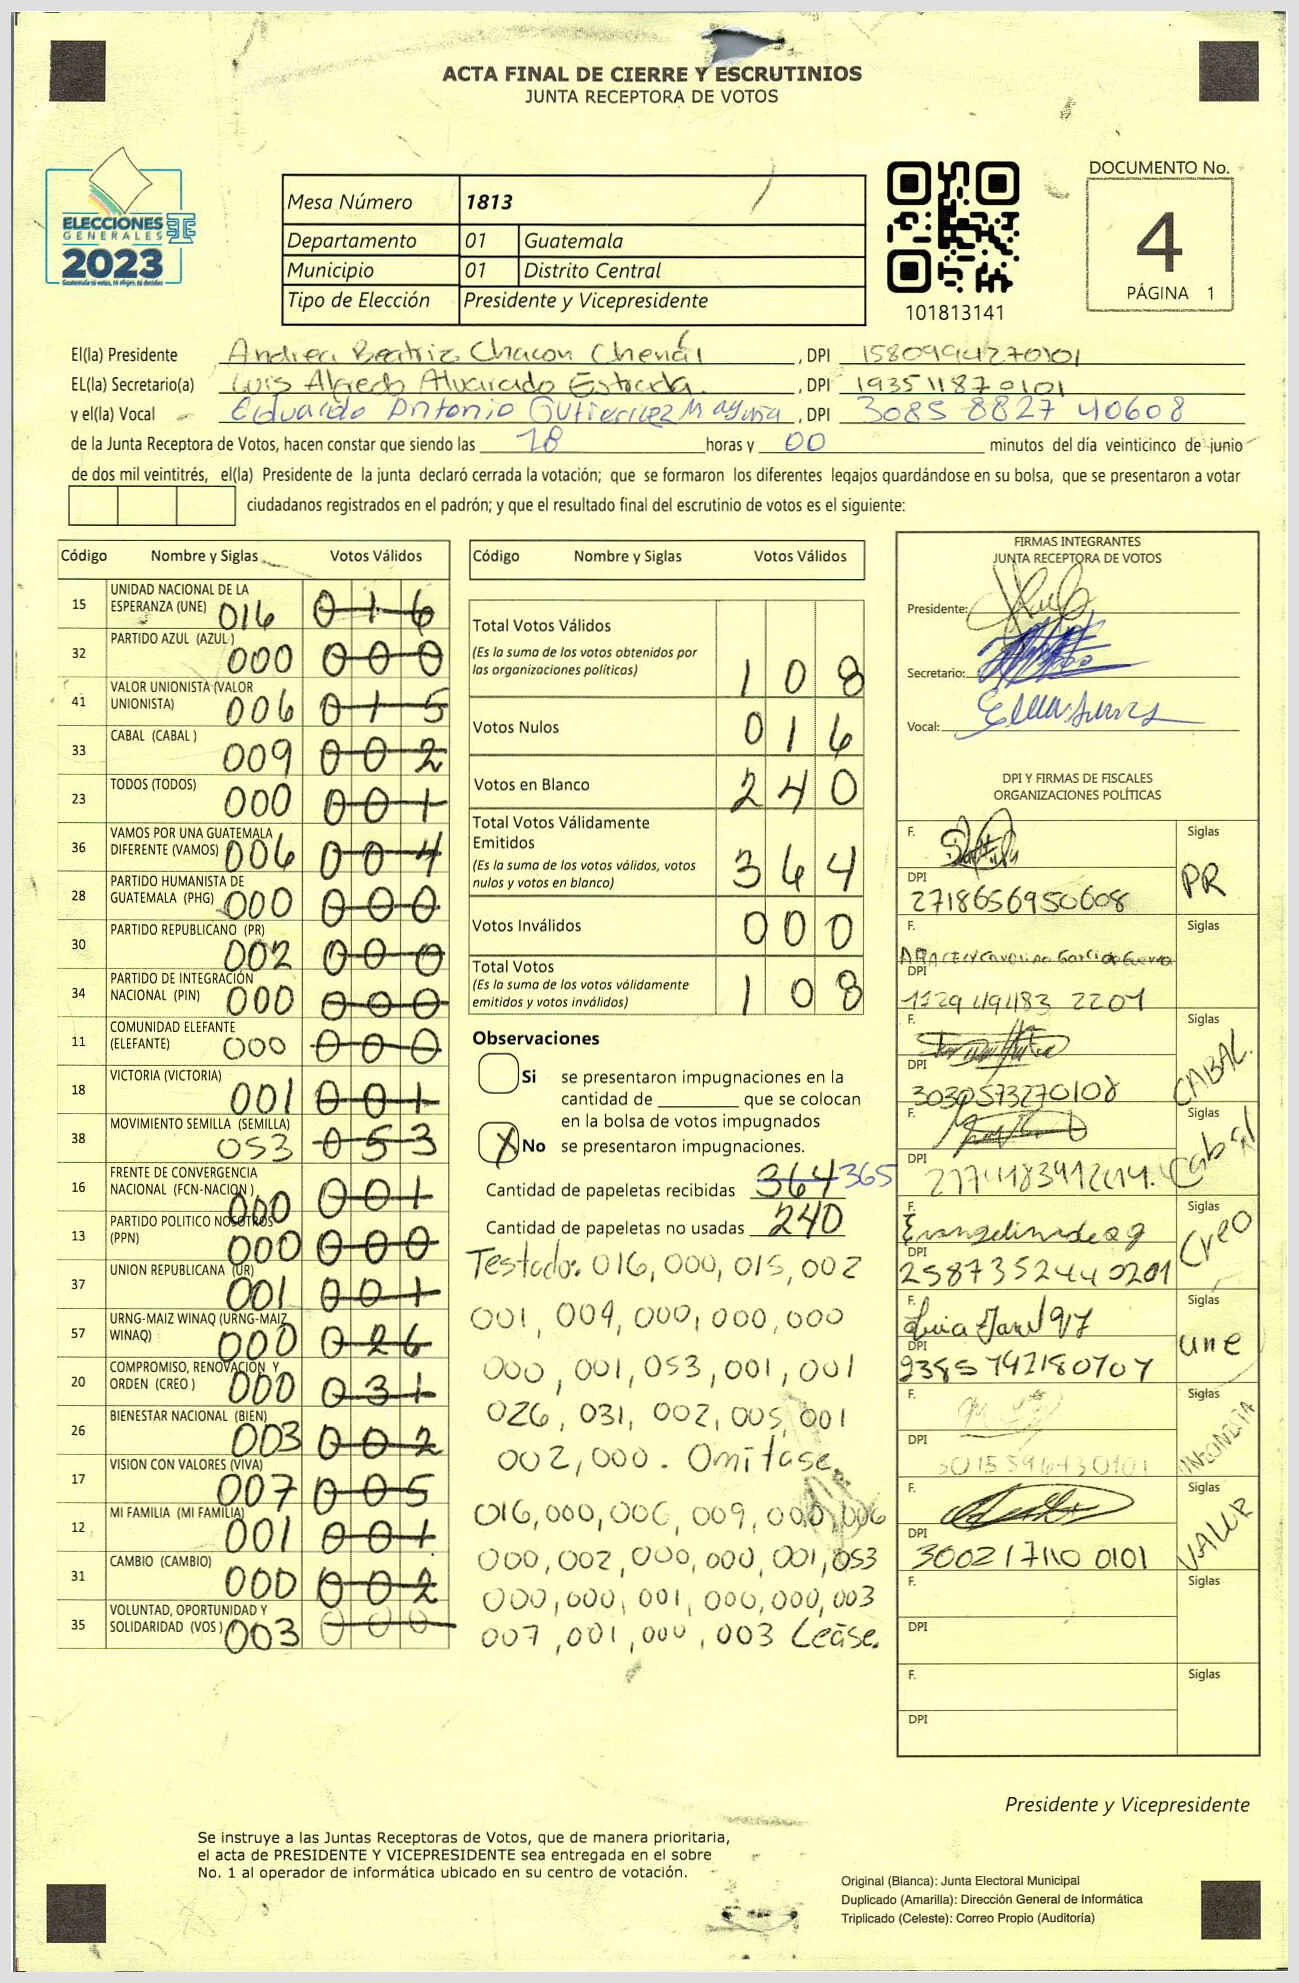 ACTA FINAL DE CIERRE Y ESCRUTINIOS
JUNTA RECEPTORA DE VOTOS
ELECCIONES
GENERALES
2023
Mesa Número 1813
Departamento 01 Guatemala
Municipio 01 Distrito Central
Tipo de Elección Presidente y Vicepresidente
101813141
DOCUMENTO No.
4
PÁGINA 1
El(la) Presidente Andrea Beatriz Chacon Chenál , DPI 1580994270101
EL(la) Secretario(a) Luis Alfredo Alvarado Estrada. , DPI 1935118970101
y el(la) Vocal Eduardo Antonio Gutierrez , DPI 3085 8827 40608
de la Junta Receptora de Votos, hacen constar que siendo las 18 horas y 00 minutos del día veinticinco de junio
de dos mil veintitrés, el(la) Presidente de la junta declaró cerrada la votación; que se formaron los diferentes legajos guardándose en su bolsa, que se presentaron a votar
ciudadanos registrados en el padrón; y que el resultado final del escrutinio de votos es el siguiente:
Código Nombre y Siglas Votos Válidos
15 UNIDAD NACIONAL DE LA
ESPERANZA (UNE) 016 016
32 PARTIDO AZUL (AZUL) 000 000
41 VALOR UNIONISTA (VALOR
UNIONISTA) 006 015
33 CABAL (CABAL) 009 002
23 TODOS (TODOS) 000 001
36 VAMOS POR UNA GUATEMALA
DIFERENTE (VAMOS) 006 004
28 PARTIDO HUMANISTA DE
GUATEMALA (PHG) 000 000
30 PARTIDO REPUBLICANO (PR) 002 000
34 PARTIDO DE INTEGRACIÓN
NACIONAL (PIN) 000 000
11 COMUNIDAD ELEFANTE
(ELEFANTE) 000 000
18 VICTORIA (VICTORIA) 001 001
38 MOVIMIENTO SEMILLA (SEMILLA) 053 053
16 FRENTE DE CONVERGENCIA
NACIONAL (FCN-NACION) 000 001
13 PARTIDO POLITICO NOSOTROS
(PPN) 000 000
37 UNION REPUBLICANA (UR) 001 001
57 URNG-MAIZ WINAQ (URNG-MAIZ
WINAQ) 000 026
20 COMPROMISO, RENOVACIÓN Y
ORDEN (CREO) 000 031
26 BIENESTAR NACIONAL (BIEN) 003 002
17 VISION CON VALORES (VIVA) 007 005
12 MI FAMILIA (MI FAMILIA) 001 001
31 CAMBIO (CAMBIO) 000 002
35 VOLUNTAD, OPORTUNIDAD Y
SOLIDARIDAD (VOS) 003 000
Código Nombre y Siglas Votos Válidos
Total Votos Válidos
(Es la suma de los votos obtenidos por
las organizaciones políticas) 108
Votos Nulos 016
Votos en Blanco 240
Total Votos Válidamente
Emitidos
(Es la suma de los votos válidos, votos
nulos y votos en blanco) 364
Votos Inválidos 000
Total Votos
(Es la suma de los votos válidamente
emitidos y votos inválidos) 108
Observaciones
Si se presentaron impugnaciones en la
cantidad de ________ que se colocan
en la bolsa de votos impugnados
X No se presentaron impugnaciones.
Cantidad de papeletas recibidas 364 365
Cantidad de papeletas no usadas 240
Testado: 016, 000, 015, 002
001, 004, 000, 000, 000
000, 001, 053, 001, 001
026, 031, 002, 005, 001
002, 000. Omitase.
016, 000, 006, 009, 000, 006
000, 002, 000, 000, 001, 053
000, 000, 001, 000, 000, 003
007, 001, 000, 003 Lease.
FIRMAS INTEGRANTES
JUNTA RECEPTORA DE VOTOS
Presidente:
Secretario:
Vocal:
DPI Y FIRMAS DE FISCALES
ORGANIZACIONES POLÍTICAS
F. Siglas
PR
DPI
2718656950608
F. Siglas
DPI
1729 49483 2201
F. Siglas
CABAL.
DPI
3030573270108
F. Siglas
Cabal
DPI
F. Siglas
Creo
DPI
2587352440201
F. Siglas
une
DPI
9385792180707
F. Siglas
DPI
F. Siglas
VALOR
DPI
3002171100101
F. Siglas
DPI
F. Siglas
DPI
Presidente y Vicepresidente
Se instruye a las Juntas Receptoras de Votos, que de manera prioritaria,
el acta de PRESIDENTE Y VICEPRESIDENTE sea entregada en el sobre
No. 1 al operador de informática ubicado en su centro de votación.
Original (Blanca): Junta Electoral Municipal
Duplicado (Amarilla): Dirección General de Informática
Triplicado (Celeste): Correo Propio (Auditoría)